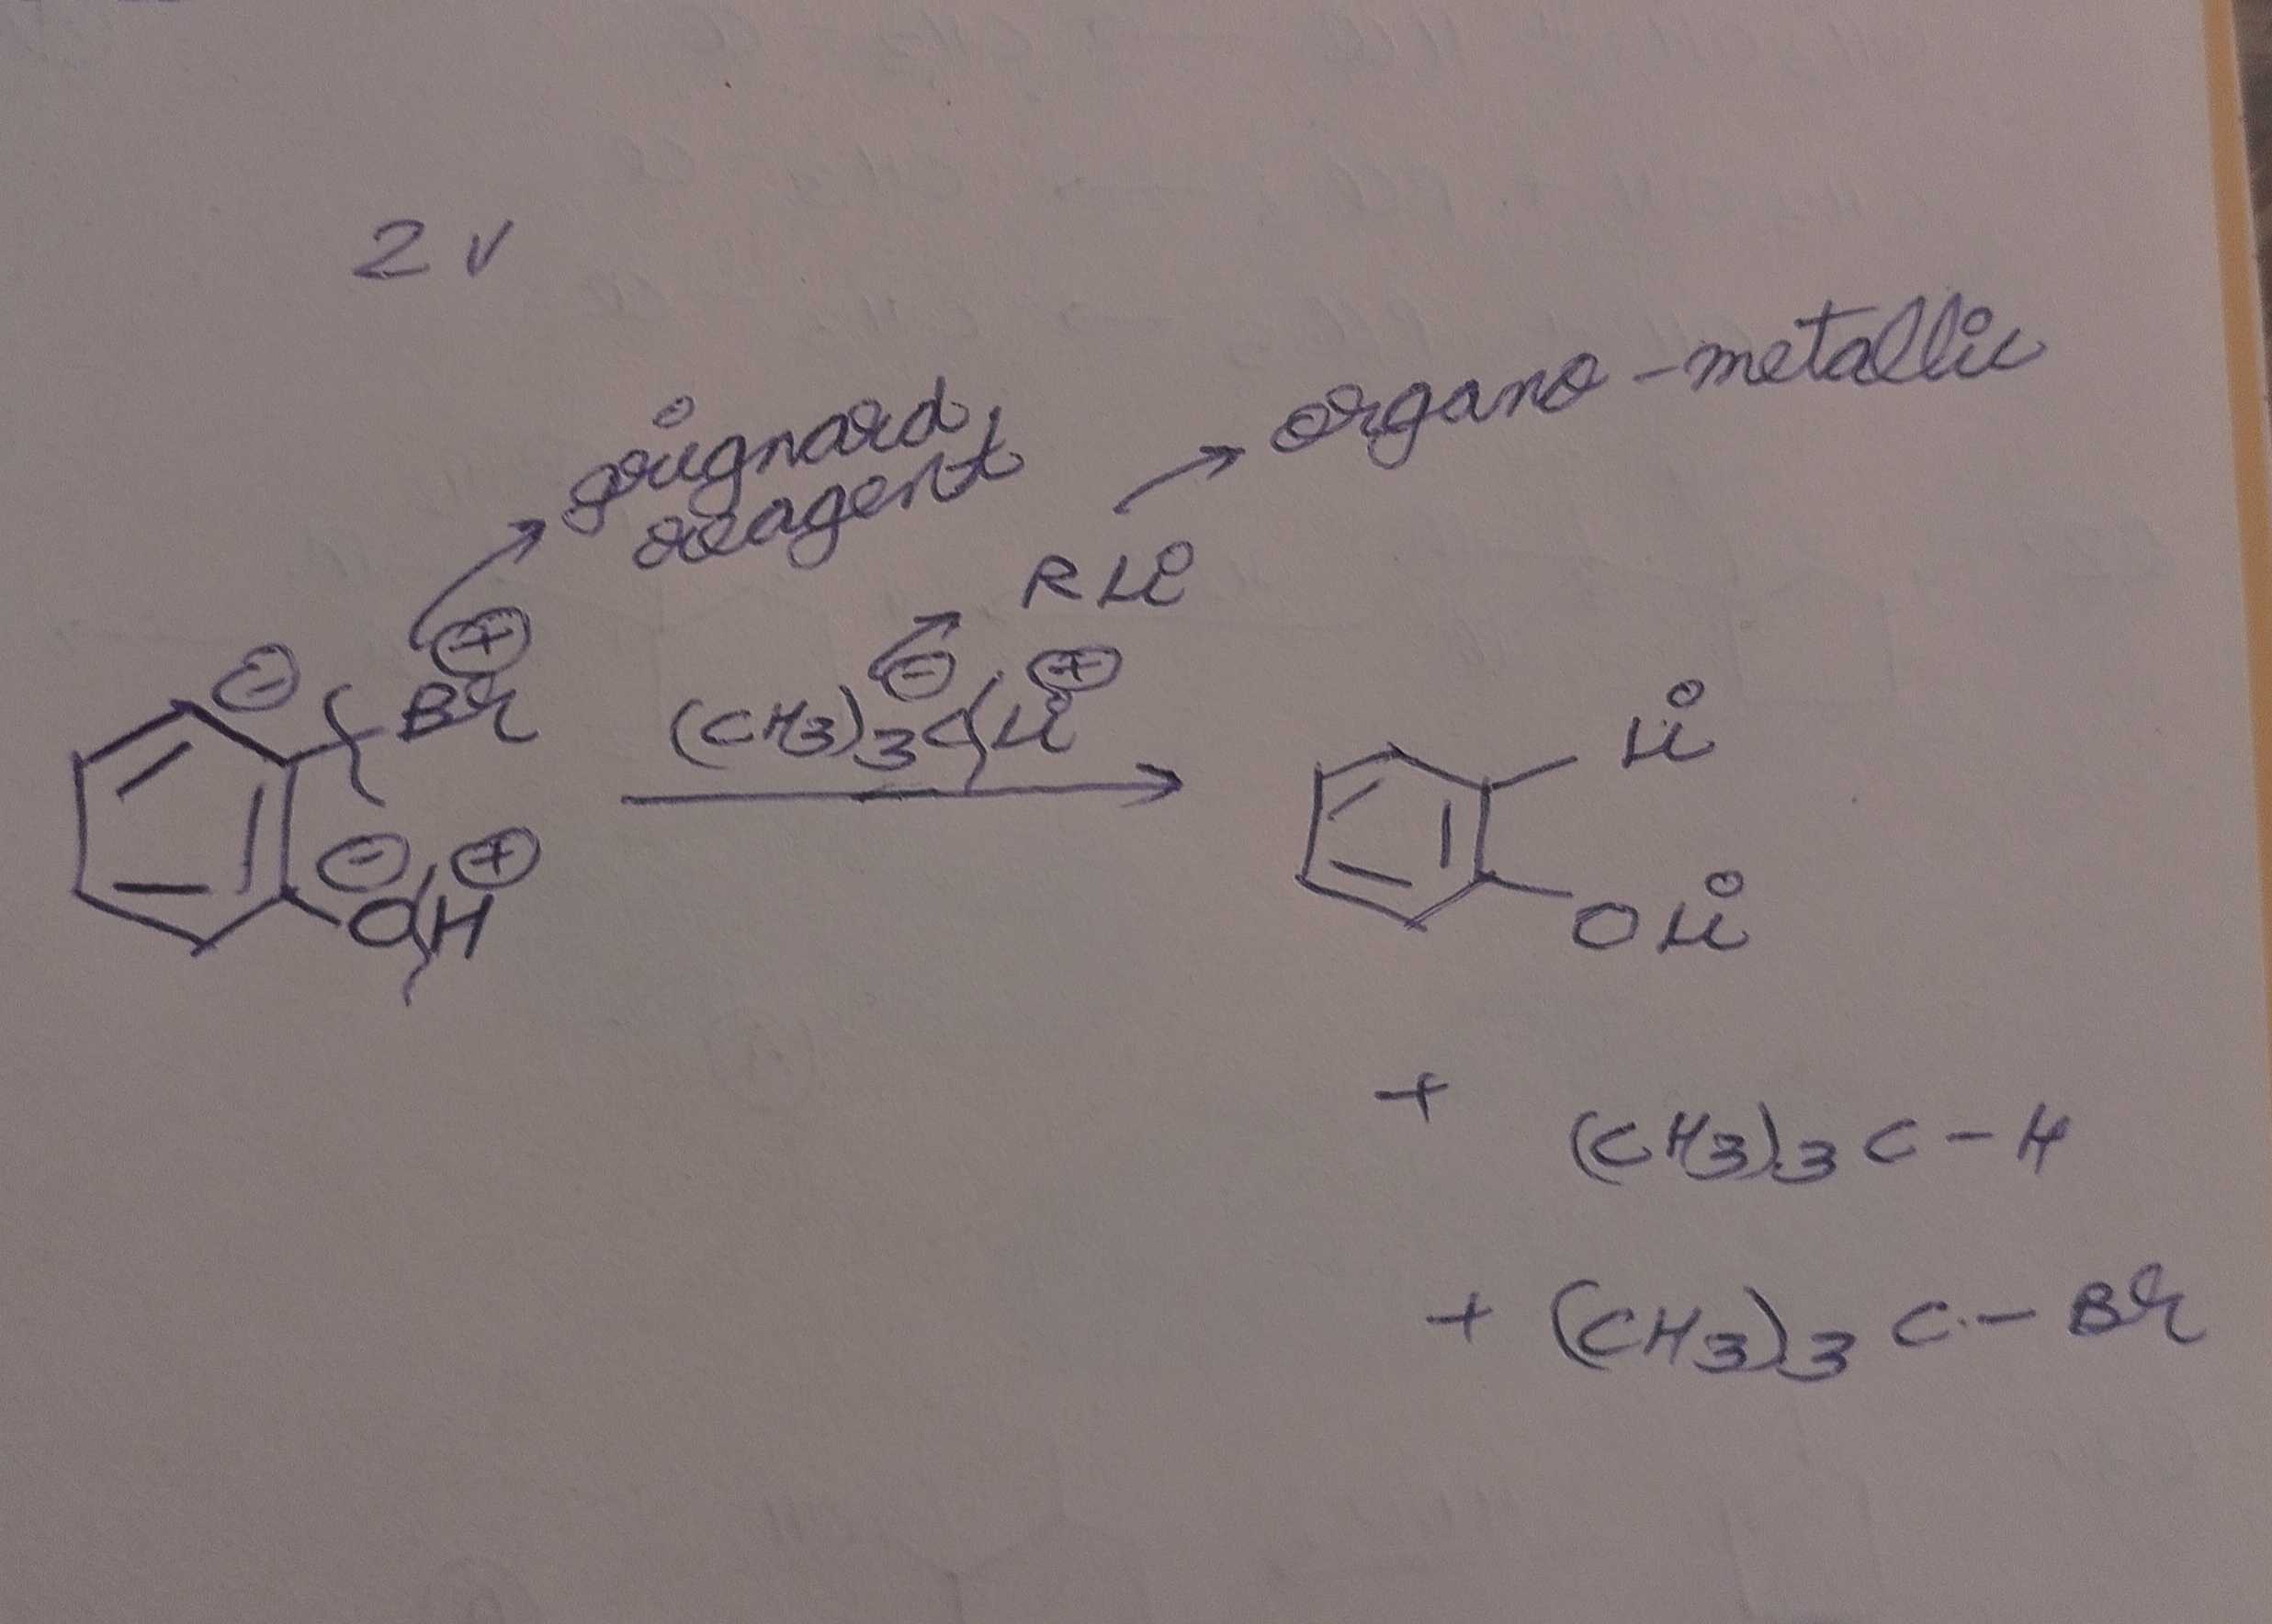 2 v
grignard
reagent
organo-metallic
RLi
⊖ ⊕
Br
(CH3)3C Li
⊖ ⊕
⊖ ⊕
OH
Li
OLi
+ (CH3)3C-H
+ (CH3)3C-Br